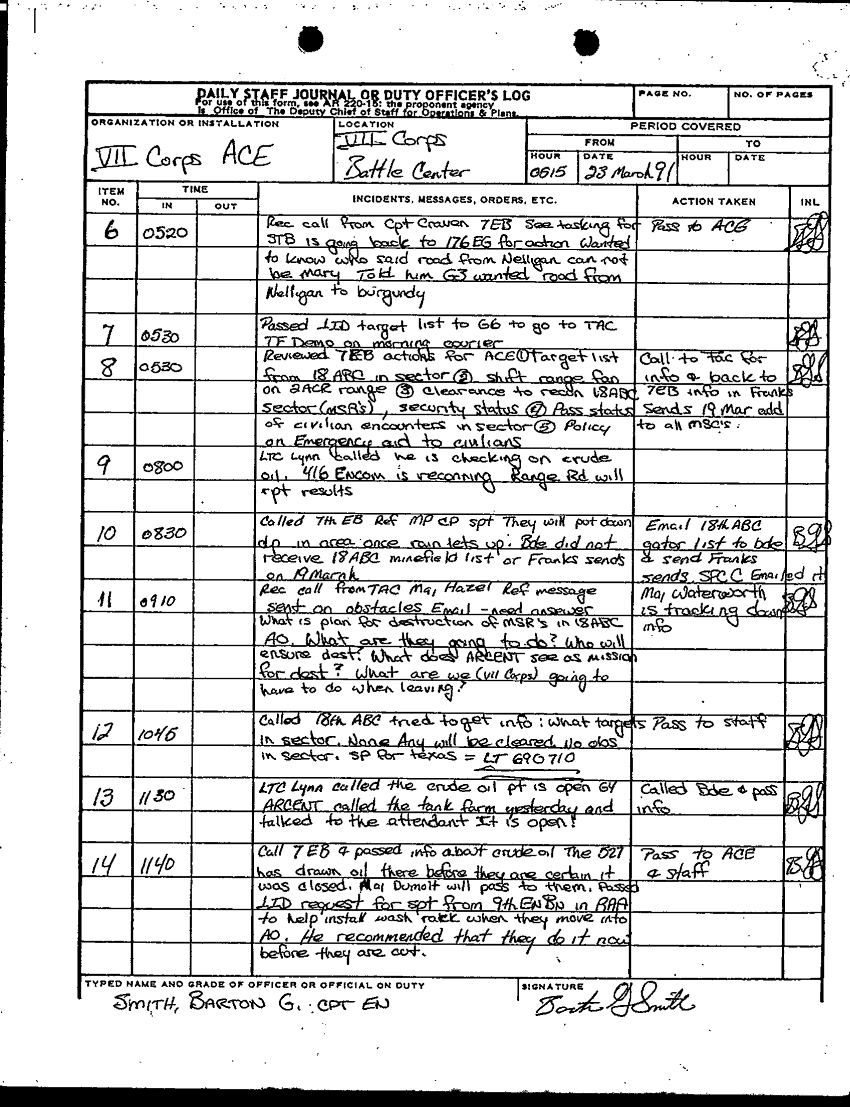 DAILY STAFF JOURNAL OR DUTY OFFICER'S LOG
For use of this form, see AR 220-15; the proponent agency
is Office of The Deputy Chief of Staff for Operations & Plans.
PAGE NO.
NO. OF PAGES
ORGANIZATION OR INSTALLATION
VII Corps ACE
LOCATION
VII Corps
Battle Center
PERIOD COVERED
FROM
TO
HOUR
DATE
HOUR
DATE
0615
23 March 91
ITEM NO.
TIME
IN
OUT
INCIDENTS, MESSAGES, ORDERS, ETC.
ACTION TAKEN
INL
6 0520 Rec call from Cpt Craven 7EB See tasking for Pass to ACE
3TB is going back to 176EG for action Wanted
to know who said road from Nelligan can not
be mary Told him G3 wanted road from
Nelligan to burgundy
7 0530 Passed 1ID target list to G6 to go to TAC
TF Demo on morning courier
8 0530 Reviewed 7EB actions for ACE ① Target list Call to tac for
from 18 ABC in sector ② shift range fan info & back to
on 2ACR range ③ clearance to recon 18ABC 7EB info in Franks
sector (MSR's), security status ④ Pass status Sends 19 Mar add
of civilian encounters in sector ⑤ Policy to all MSC's.
on Emergency aid to civilians
9 0800 LTC Lynn called he is checking on crude
oil. 416 Encom is reconning Range Rd will
rpt results
10 0830 Called 7th EB Ref MP CP spt They will put down Email 18th ABC
dp in area once rain lets up. Bde did not gator list to bde
receive 18ABC minefield list or Franks sends & send Franks
on 19 March sends. SPC C Emailed it
11 0910 Rec call from TAC Maj Hazel Ref message Maj Waterworth
sent on obstacles Email - need answer is tracking down
What is plan for destruction of MSR's in 18ABC info
AO. What are they going to do? Who will
ensure dest? What does ARCENT see as mission
for dest? What are we (VII Corps) going to
have to do when leaving?
12 1045 Called 18th ABC tried to get info: what targets Pass to staff
in sector. None Any will be cleared. No obs
in sector. SP for texas = LT 690710
13 1130 LTC Lynn called the crude oil pt is open G4 Called Bde & pass
ARCENT called the tank farm yesterday and info
talked to the attendant It is open!
14 1140 Call 7 EB & passed info about crude oil The 527 Pass to ACE
has drawn oil there before they are certain it & staff
was closed. Maj Dumolt will pass to them. Passed
1ID request for spt from 9th EN BN in RAA
to help install wash rack when they move into
AO. He recommended that they do it now
before they are cut.
TYPED NAME AND GRADE OF OFFICER OR OFFICIAL ON DUTY
SMITH, BARTON G. CPT EN
SIGNATURE
Barton G Smith